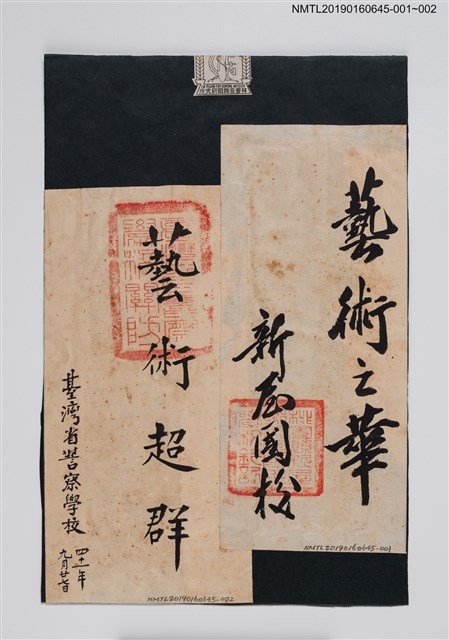 NMTL20190160645-001~002
藝術之華
新屋國校
NMTL20190160645-001
藝術超群
臺灣省警察學校
四十一年
九月廿七日
NMTL20190160645-002